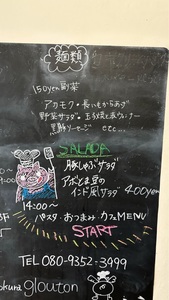 麺類
150yen副菜
アカモク・長いもからあげ
野菜サラダ・玉子焼と赤ウィンナー
黒豚ソーセージ etc...
SALADA
豚しゃぶサラダ
アボとまの
インド風サラダ 400yen
14:00~
パスタ・おつまみ・カフェMENU
START
TEL 080-9352-3999
glouton